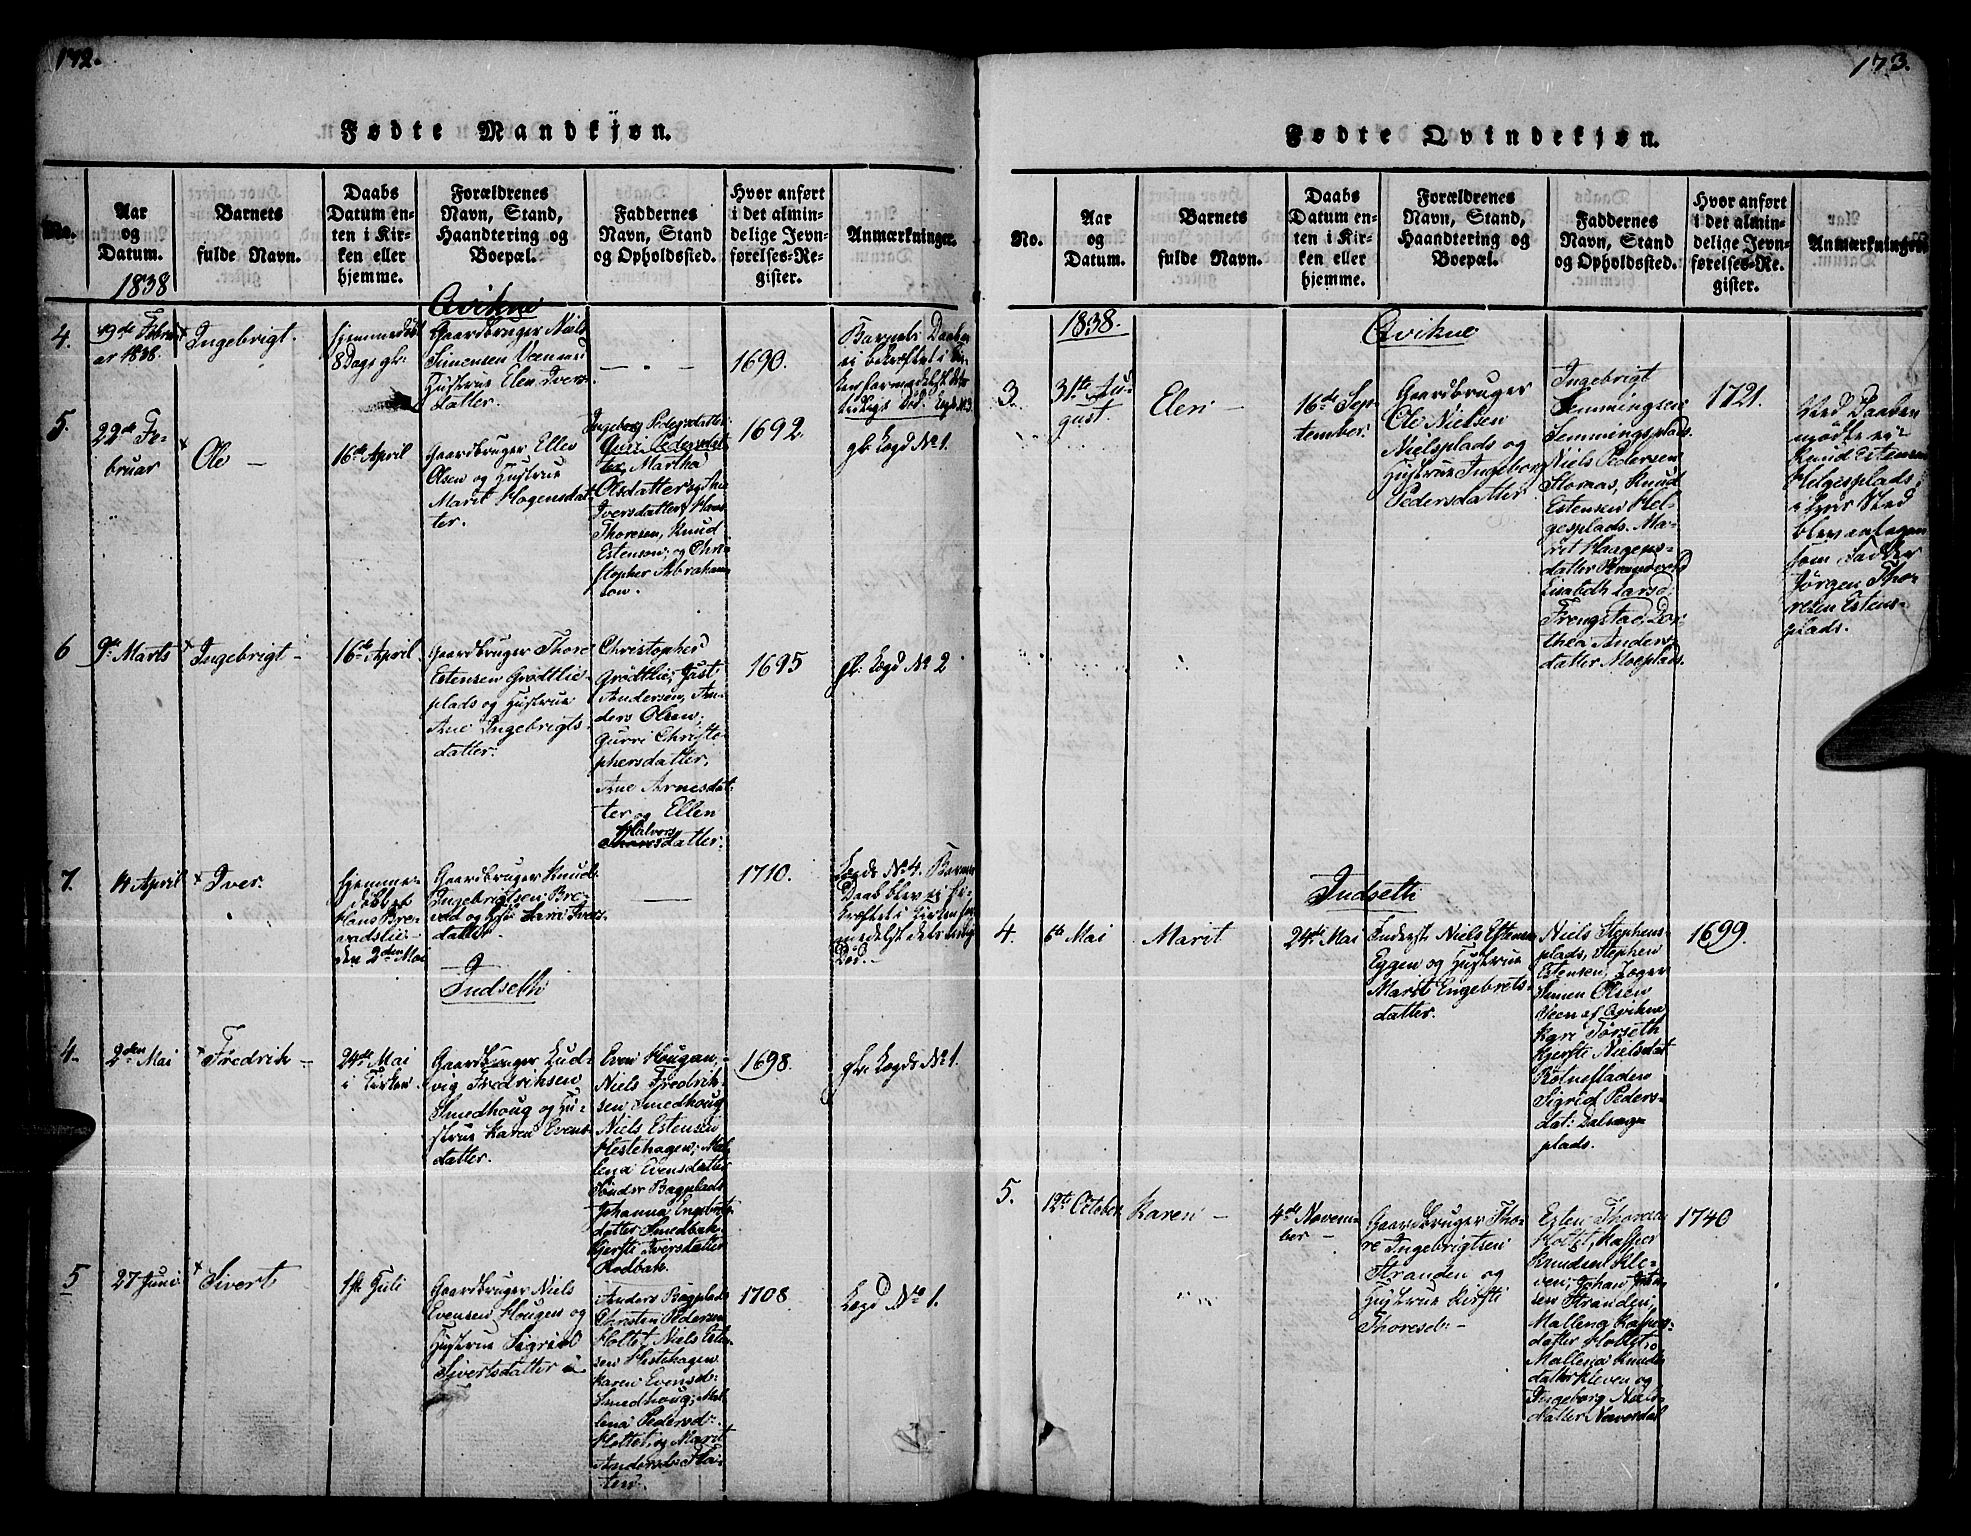 172.
Fødte Mandkjøn.
No.
Aar
og
Datum.
1838
Barnets
fulde Navn.
Daabs
Datum en-
ten i Kir-
ken eller
hjemme.
Forældrenes
Navn, Stand,
Haandtering og
Boepæl.
Faddernes
Navn, Stand
og Opholdssted.
Hvor anført
i det almin-
delige Jevn-
førelses-Re-
gister.
Anmærkninger.
Qvikne
4.
19de Febru-
ar 1838
Ingebrigt.
hjemmedøbt
8 Dage gl.
Gaardbruger Niels
Simensen Veen
Hustrue Elen Ivers-
datter.
— . —
1690.
Barnets Daab
ei bekræftet i Kir-
ken formedelst dets
tidlige Død.
5.
22de Fe-
bruar
Ole —
16de April
Gaardbruger Ellev
Olsen og Hustrue
Marit Hogensdat-
ter.
Ingeborg Pedersdatter
Guri Pedersdat-
ter, Martha
Olsdatter
Iversdatter, Hans
Thoresen, Knud
Estensen, og Chri-
stopher Abraham-
sen.
1692.
gl. Logd No 1.
6
9de Marts
Ingebrigt —
16de April
Gaardbruger Thore
Estensen Grødtlie-
plads og Hustrue
Ane Ingebrigts-
datter.
Christopher
Grødtlie, Just
Andersen, An-
ders Olsen,
Gurri Christo-
phersdatter,
Ane Arnesdat-
ter og Ellen
Halvors
Thoresdatter.
1695
gl. Logd No 2
7.
14 April
Iver.
hjemme-
døbt af
Hans Bre-
vadslie
den 2den Mai
Gaardbruger Knud
Ingebrigtsen Bre-
vad og Hustrue Kari Ivers-
datter.
—
1710.
Logd No 4. Barnets
Daab blev ei be-
kræftet i Kirken for-
medelst dets tidlige
Død.
Indseth
4.
2den Mai
Fredrik —
24de Mai
i Kirken.
Gaardbruger Lud-
vig Fredriksen
Smedhoug og Hu-
strue Karen Evens-
datter.
Even Hougan,
Niels Fredrik-
sen Smedhoug
Niels Estensen
Hestehagen, Mal-
lena Evensdatter
Sønder Bagplads
Johanna Engebrets-
datter Smedbak
Kjersti Iversdatter
Rødbak.
1698.
gl. Logd No 1.
5
27 Juni
Sivert
1ste Juli
Gaardbruger Niels
Evensen Hougen og
Hustrue Sigrid
Sivertsdatter
Anders Bagplads
Christen Pedersen
Holtet, Niels Esten-
sen Hestehagen
Karen Evensd:
Smedhoug, Mal-
lena Pedersd:
Holtet, og Marit
Andersd: Flo-
ten.
1708
Logd No 1.
173.
Fødte Qvindekjøn.
No.
Aar
og
Datum.
Barnets
fulde Navn.
Daabs
Datum en-
ten i Kir-
ken eller
hjemme.
Forældrenes
Navn, Stand,
Haandtering og
Boepæl.
Faddernes
Navn, Stand
og Opholdssted.
Hvor anført
i det almin-
delige Jevn-
førelses-Re-
gister.
Anmærkninger.
1838.
Qvikne
3.
31te Au-
gust
Elen —
16de Sep-
tember.
Gaardbruger
Ole Nielsen
Nielsplads og
Hustrue Ingeborg
Pedersdatter
Ingebrigt
Semmingsen
Semmingsplads.
Niels Pedersen
Stomas, Knud
Estensen Hel-
gesplads. Ma-
rit Haagens-
datter
Lisabeth Larsd:
Frengstad, Do-
thea Anders-
datter Moeplads.
1721.
Ved Daaben
mødte ei
Knud Estensen
Helgesplads;
i hvis Sted
blev antagen
som Fadder
Jørgen Tho-
resen Estens-
plads.
Indseth
4.
6te Mai
Marit
24de Mai
Inderst Niels Estensen
Eggen og Hustrue
Marit Engebrets-
datter.
Niels Stephens-
plads, Stephen
Estensen,
Simen Olsen
Veen af Qvikne
Kari Tørseth
Kjersti Nielsdat
Rotnefladen
Sigrid Peders-
dat: Dalvangs-
plads.
1699.
5.
12te October
Karen —
4de Novem-
ber —
Gaardbruger Tho-
re Ingebrigtsen
Stranden og
Hustrue Kirsti
Thoresd: —
Esten Thoresen
Holtet, Kasper
Knudsen Kle-
ven, Johan
sen Stranden,
Mallena Kaspers-
datter Holtet,
Mallena Knuds-
datter Kleven og
Ingeborg Niels-
datter Naverdal
1740